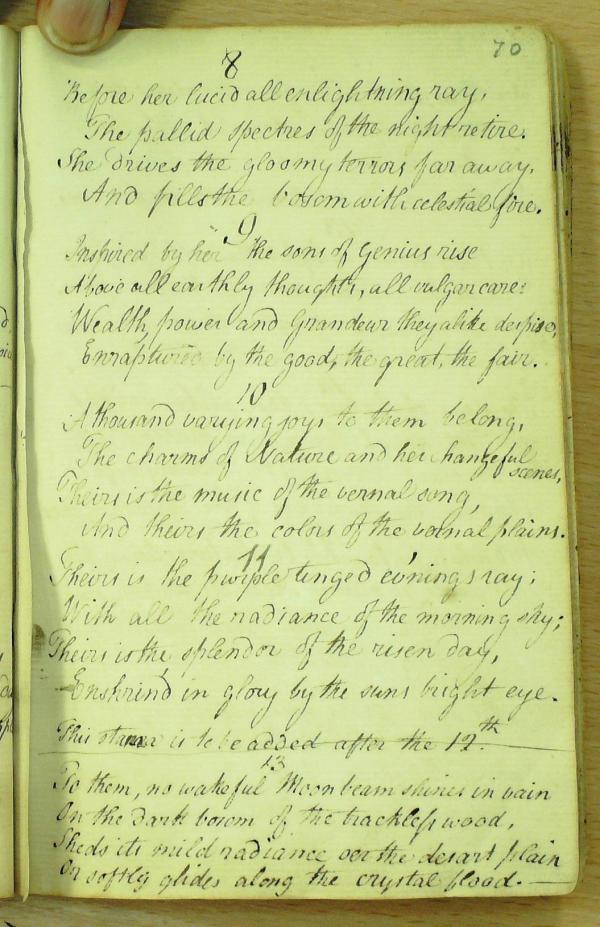 70
8
Before her lucid all enlightning ray,
The pallid spectres of the night retire.
She drives the gloomy terrors far away.
And fills the bosom with celestial fire.
9
Inspired by her the sons of Genius rise
Above all earthly thoughts, all vulgar care:
Wealth, power and Grandeur they alike despise,
Enraptured by the good, the great, the fair.
10
A thousand varying joys to them belong,
The charms of Nature and her changeful
scenes,
Theirs is the music of the vernal song,
And theirs the colors of the vernal plains.
11
Theirs is the purple tinged evening's ray;
With all the radiance of the morning sky;
Theirs is the splendor of the risen day,
Enshrin'd in glory by the suns bright eye.
This stanza is to be added after the 12th
13
To them, no wakeful Moon beam shines in vain
On the dark bosom of the trackless wood,
Sheds its mild radiance oer the desart plain
Or softly glides along the crystal flood.